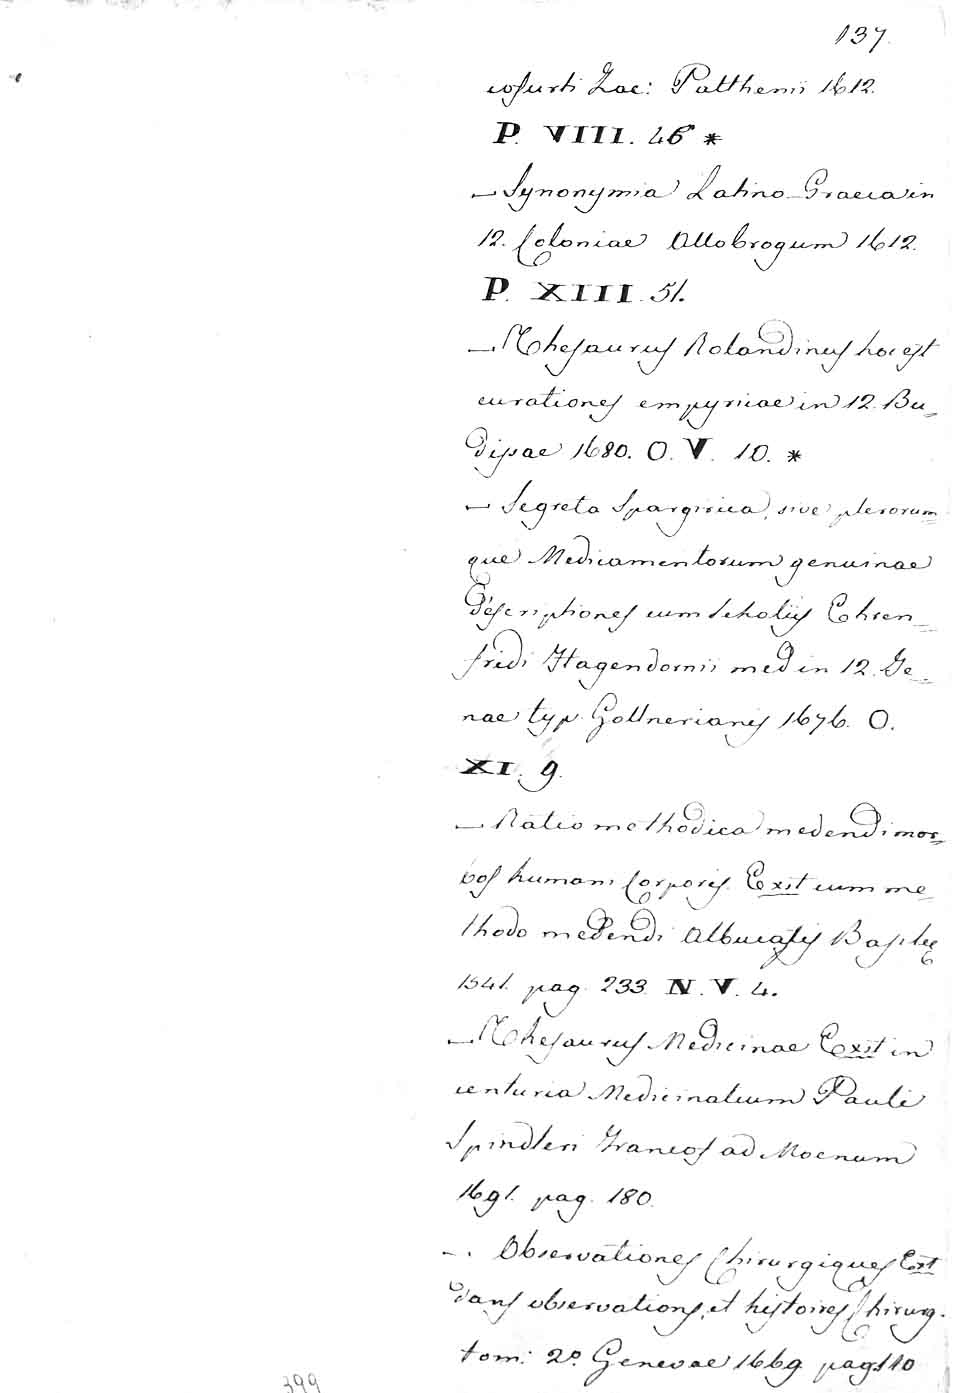 137.
cofurti Zac: Patthenii 1612.
P. VIII. 46 *
— Synonymia Latino-Graeca in
12. Coloniae Allobrogum 1612.
P. XIII. 51.
— Thesaurus Rolandinus hoc est
curationes empyricae in 12. Bu-
dissae 1680. O. V. 10. *
— Segreta Spargirica, sive plerorum-
que Medicamentorum genuinae
descriptiones cum scholiis Ehren-
fridi Hagendornii med in 12. Ge-
nae typ. Gollnerianis 1676. O.
XI. 9.
— Ratio methodica medendi mor-
bos humani Corporis. Exit cum me-
thodo medendi Albucasis Basileę
1541. pag. 233 N. V. 4.
— Thesaurus Medicinae Exit in
centuria Medicinalium Pauli
Spindleri Francof ad Moenum
1691. pag. 180.
— . Observationes Chirurgiques Ext
dans observations, et histoires Chirurg.
tom: 2º Genevae 1669 pag 110
399